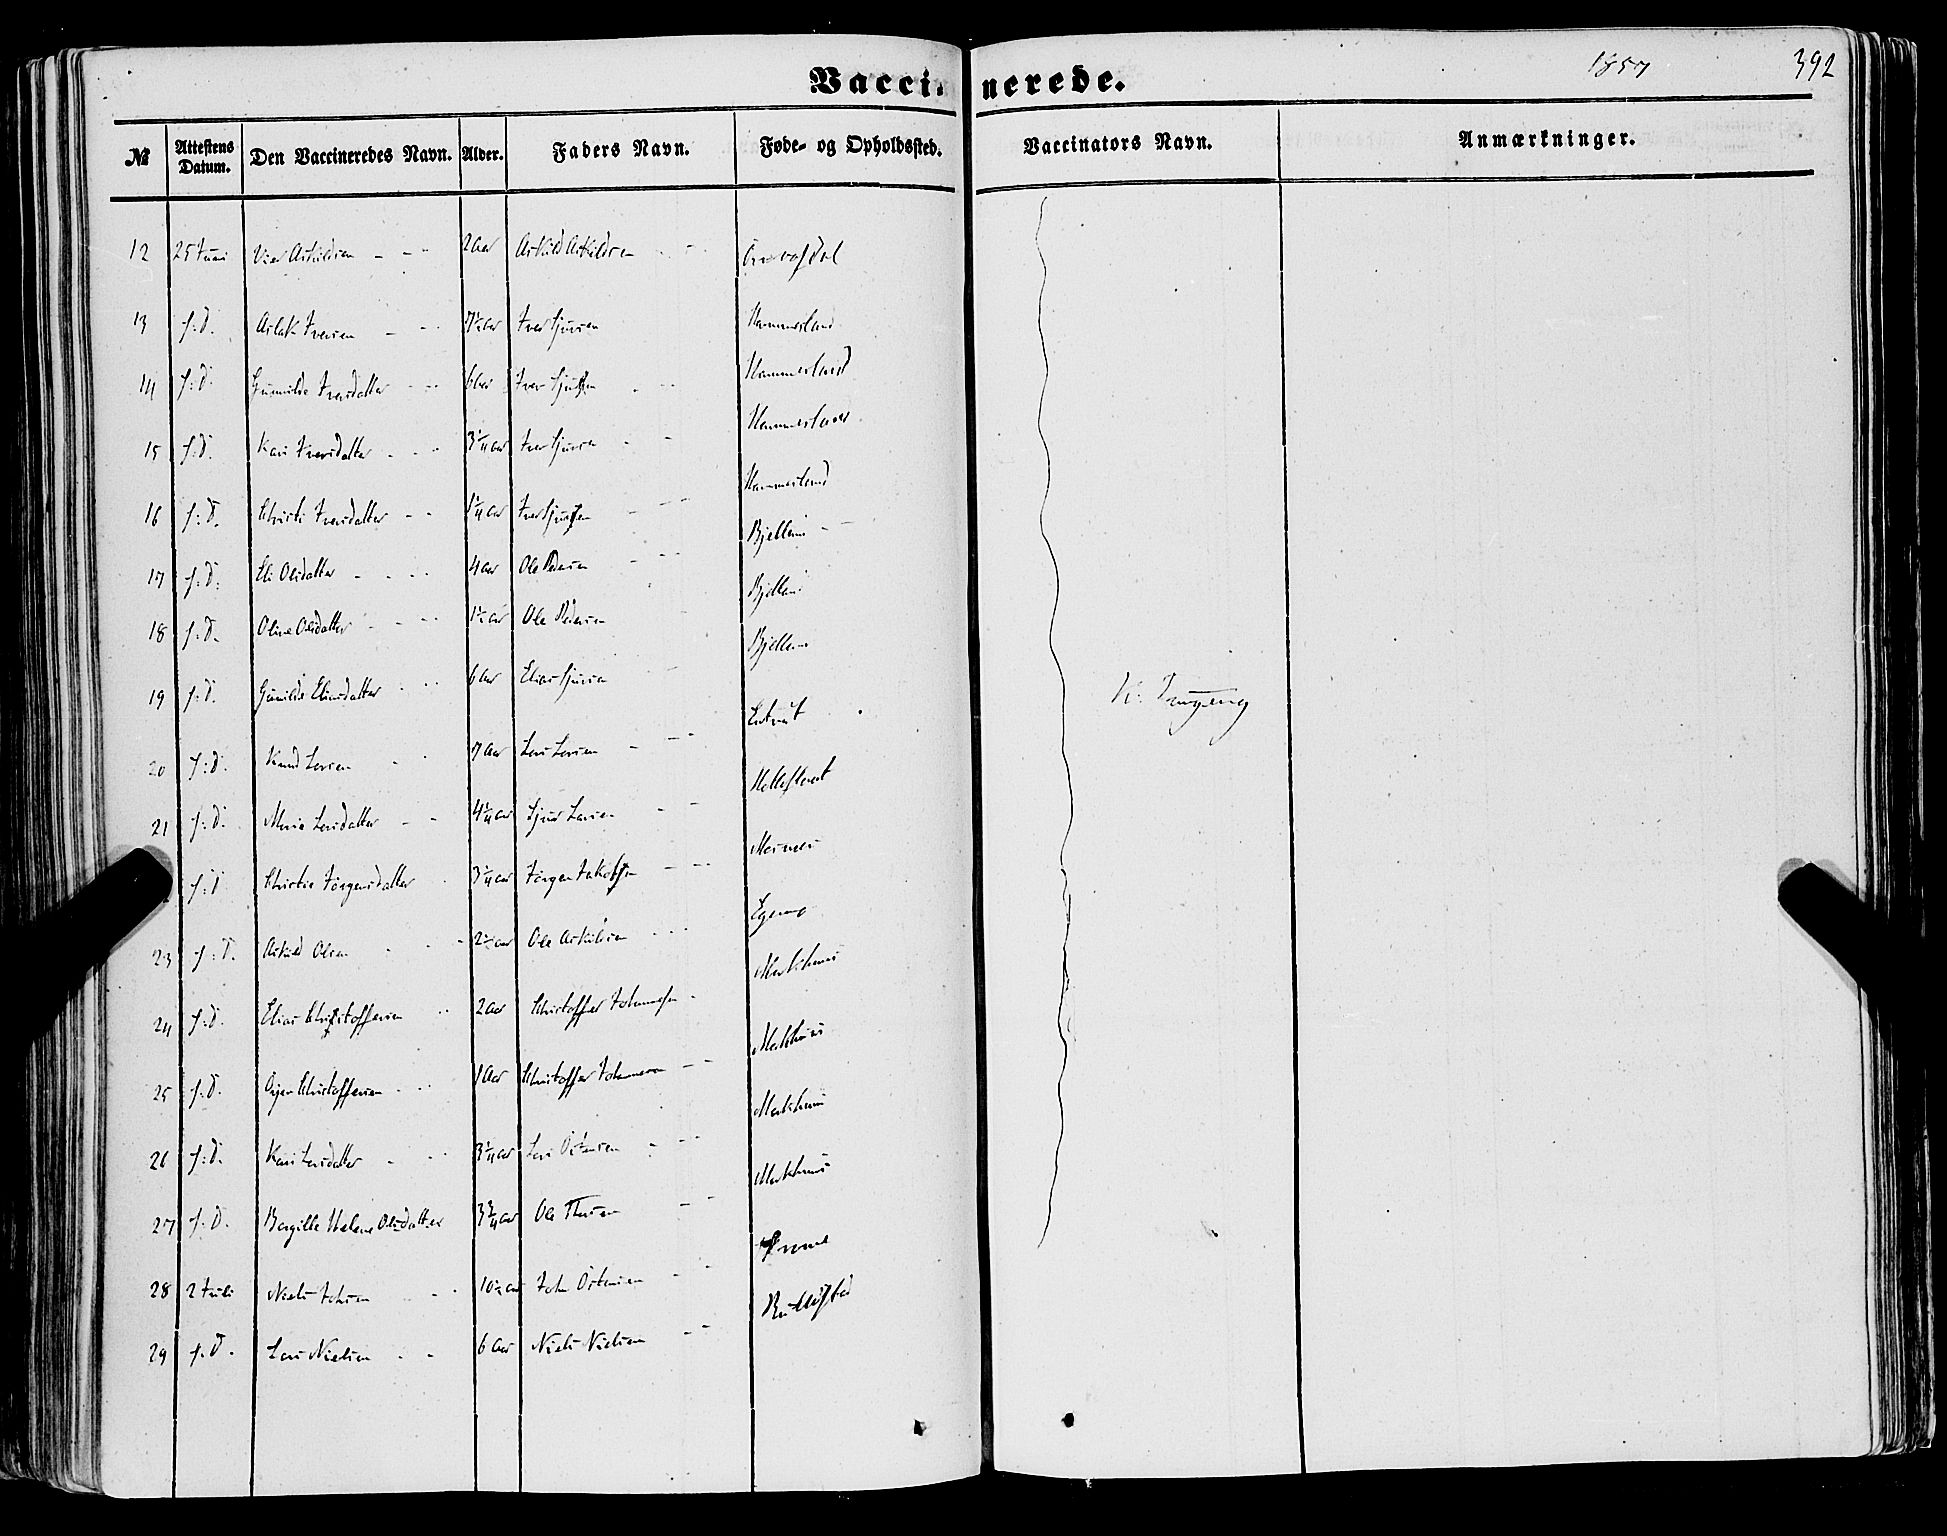 Vaccinerede.
1857
392
№ Attestens Datum. Den Vaccineredes Navn. Alder. Faders Navn. Føde- og Opholdssted. Vaccinators Navn. Anmærkninger.
12 25 Juni Askildsen 2 Aar Askild Askildsen
13 f: d. Aslak Iversen Aar Iver Sjursen Hammersland
14 f: d. Gunnilde Iversdatter 6 Aar Iver Sjursen Hammersland
15 f: d. Kari Iversdatter 3 1/4 Aar Iver Sjursen Hammersland
16 f: d. Christi Iversdatter 1 1/4 Aar Iver Sjursen Hammersland
17 f: d. Eli Olsdatter 4 Aar Ole Pedersen Bjelleni
18 f: d. Oline Olsdatter 1 1/2 Aar Ole Pedersen Bjelleni
19 f: d. Gunilde Eliasdatter 6 Aar Elias Sjursen Bjelleni
20 f: d. Knud Larsen 7 Aar Lars Larsen
21 f: d. Maria Larsdatter 4 1/4 Aar Sjur Larsen
f: d. Christie Jörgensdatter 3 1/4 Aar Jörgen Jakobsen
23 f: d. Askild Olsen 2 1/2 Aar Ole Askildsen
24 f: d. Elias Christoffersen 2 Aar Christoffer Johannesen Markhuus
25 f: d. Christoffersen 1 Aar Christoffer Johannesen Markhuus
26 f: d. Kari Larsdatter 3 1/4 Aar Lars Östensen Markhuus
27 f: d. Borgille Helene Olsdatter 3 3/4 Aar Ole Markhuus
28 2 Juli Niels Johnsen 10 1/2 Aar John Östensen
29 f: d. Lars Nielsen 6 Aar Niels Nielsen